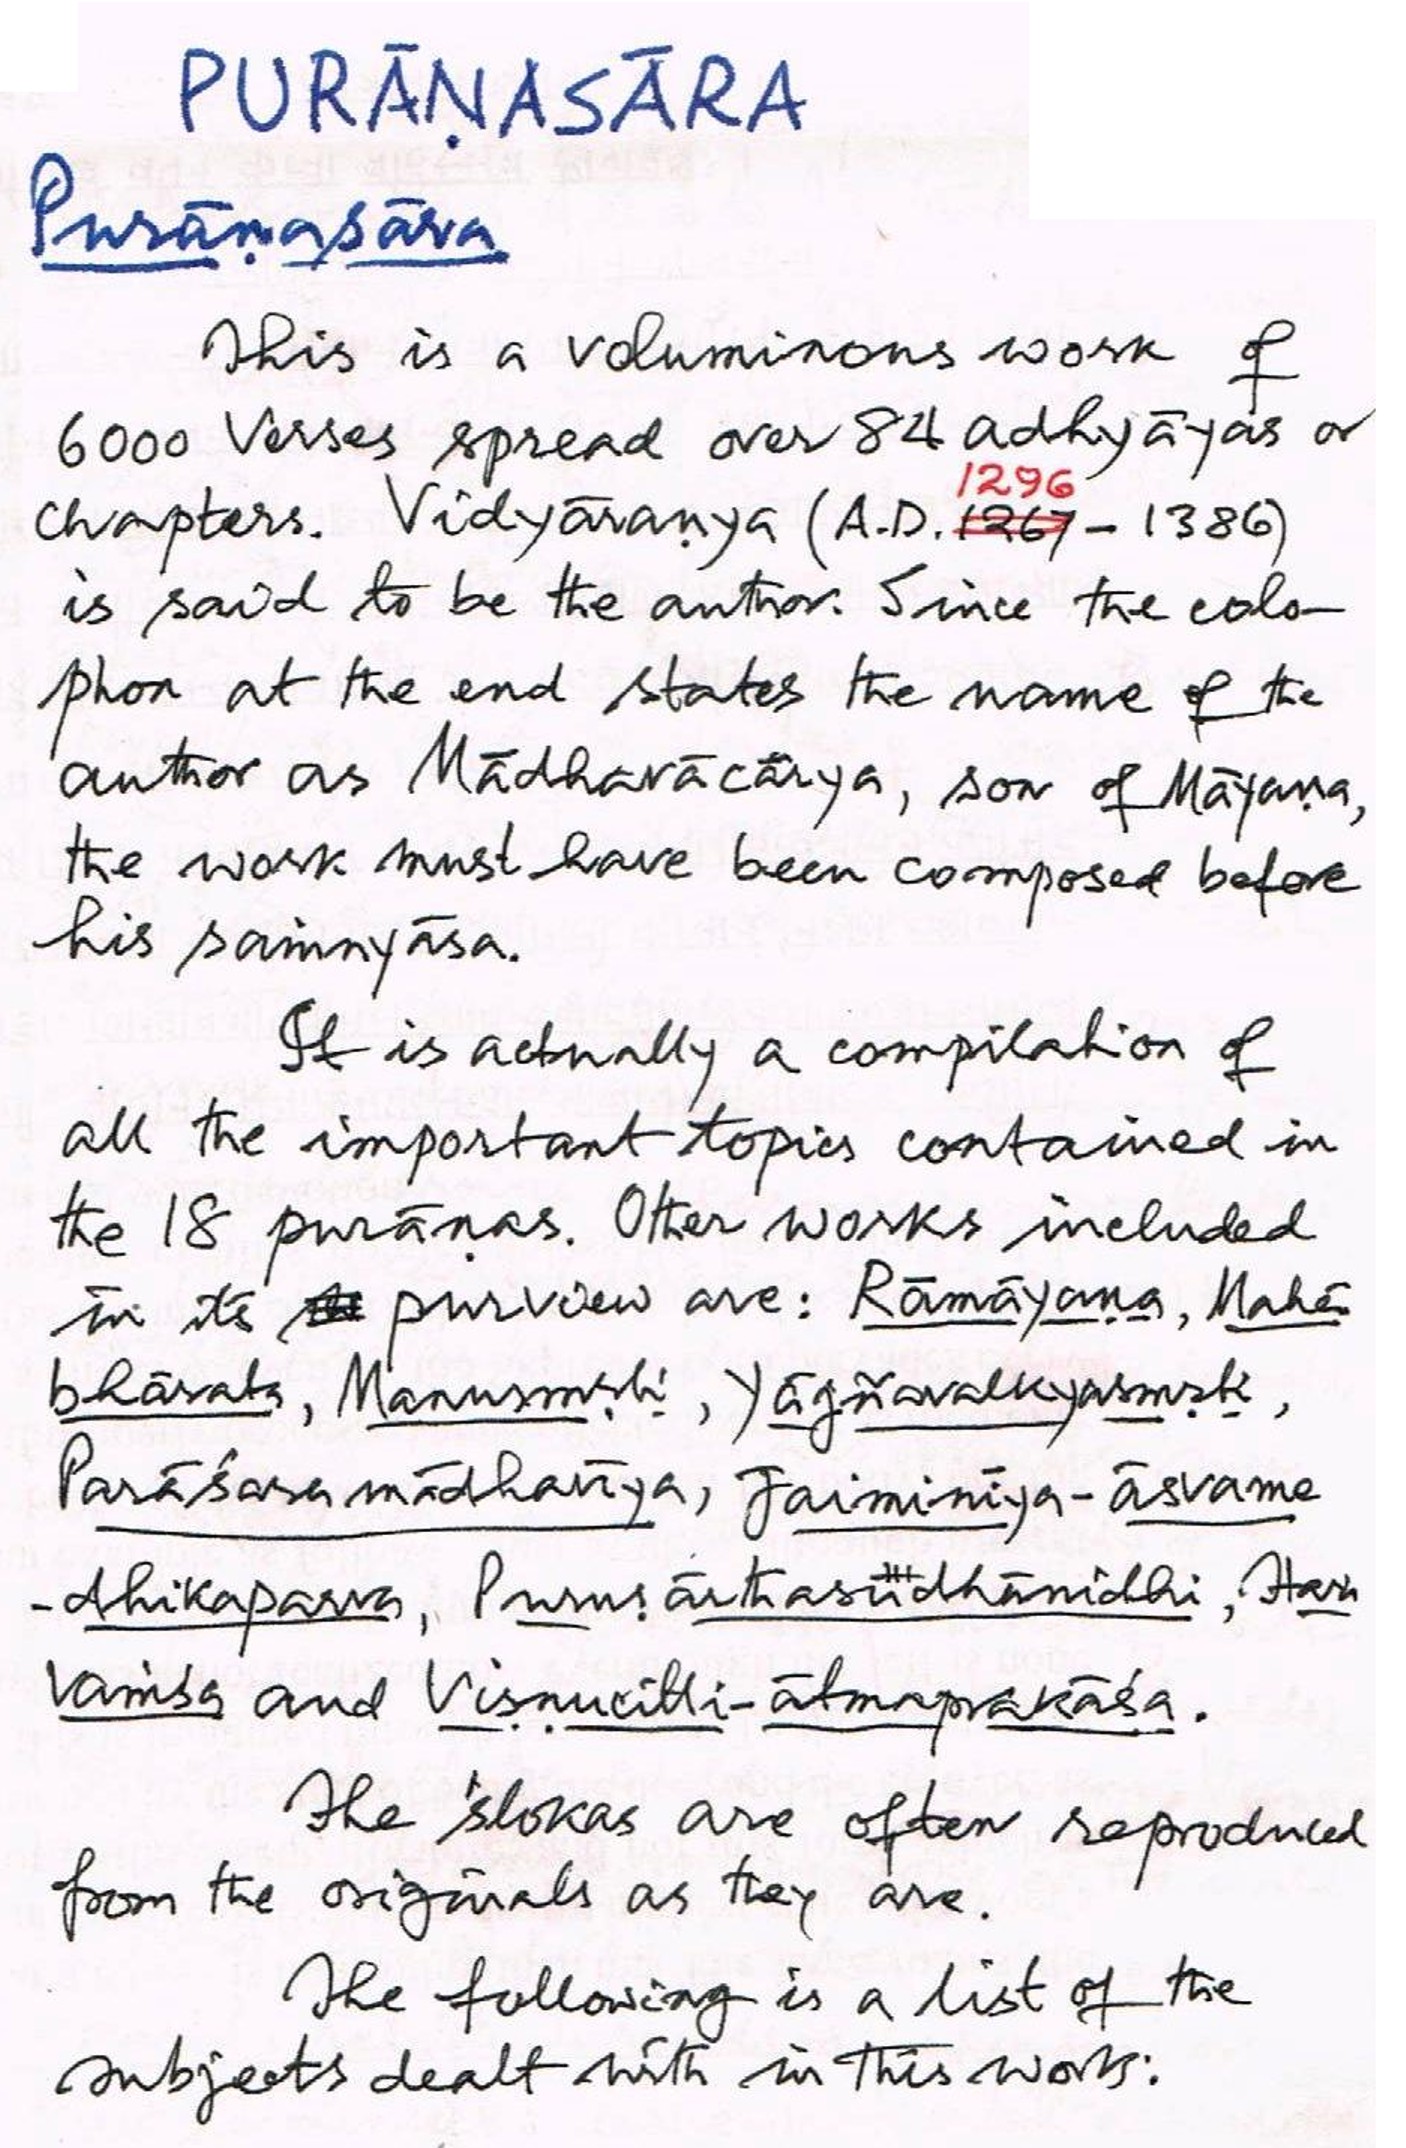 PURĀṆASĀRA
Purāṇasāra
This is a voluminous work of
6000 verses spread over 84 adhyāyas or
chapters. Vidyāraṇya (A.D. 1296
1267 – 1386)
is said to be the author. Since the colo-
phon at the end states the name of the
author as Mādhavācārya, son of Māyaṇa,
the work must have been composed before
his saṁnyāsa.
It is actually a compilation of
all the important topics contained in
the 18 purāṇas. Other works included
in its purview are: Rāmāyaṇa, Mahā
bhārata, Manusmṛti, Yāgñavalkyasmṛti,
Parāśaramādhavīya, Jaiminīya-āsvame
-dhikaparva, Puruṣārthasūdhānidhi, Hari
vaṁśa and Viṣṇucitti-ātmaprakāśa.
The ślokas are often reproduced
from the originals as they are.
The following is a list of the
subjects dealt with in this work: